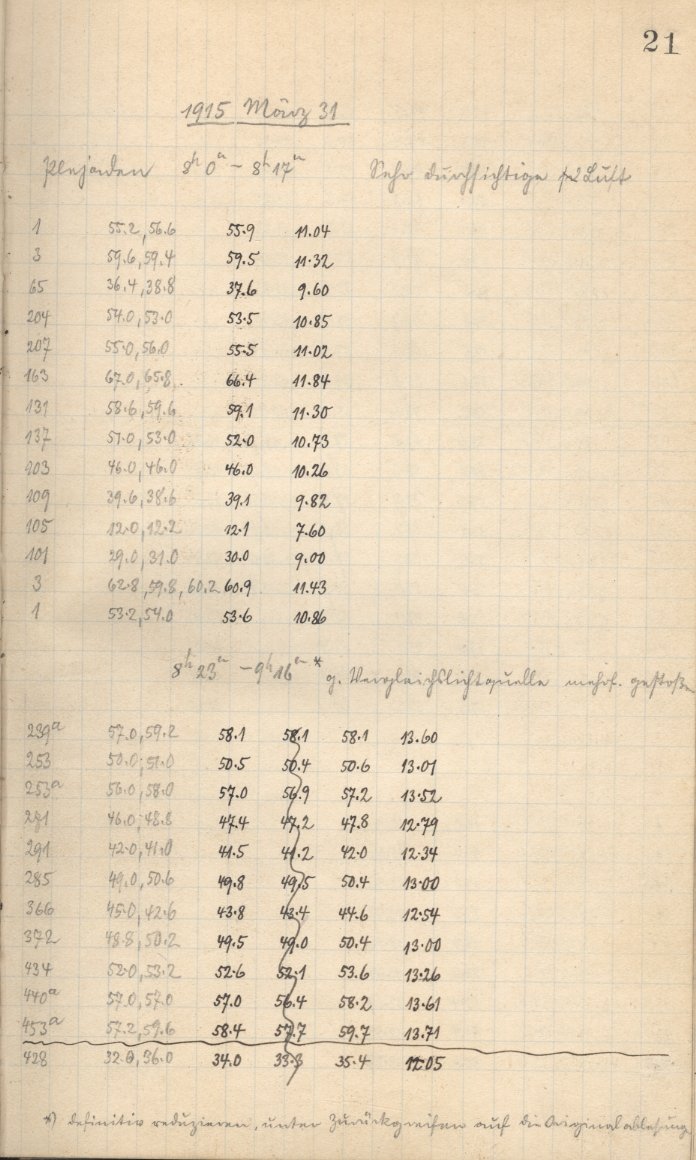 21
1915 März 31
Plejaden 8h 0m - 8h 17m Sehr durchsichtige Luft
1 55.2, 56.6 55.9 11.04
3 59.6, 59.4 59.5 11.32
65 36.4, 38.8 37.6 9.60
204 54.0, 53.0 53.5 10.85
207 55.0, 56.0 55.5 11.02
163 67.0, 65.8 66.4 11.84
131 58.6, 59.6 59.1 11.30
137 51.0, 53.0 52.0 10.73
103 46.0, 46.0 46.0 10.26
109 39.6, 38.6 39.1 9.82
105 12.0, 12.2 12.1 7.60
101 29.0, 31.0 30.0 9.00
3 62.8, 59.8, 60.2 60.9 11.43
1 53.2, 54.0 53.6 10.86
8h 23m - 9h 16m * g. Vergleichslichtquelle mehrf. gestoße
239a 57.0, 59.2 58.1 58.1 58.1 13.60
253 50.0, 51.0 50.5 50.4 50.6 13.01
253a 56.0, 58.0 57.0 56.9 57.2 13.52
271 46.0, 48.8 47.4 47.2 47.8 12.79
291 42.0, 41.0 41.5 41.2 42.0 12.34
285 49.0, 50.6 49.8 49.5 50.4 13.00
366 45.0, 42.6 43.8 43.4 44.6 12.54
372 48.8, 50.2 49.5 49.0 50.4 13.00
434 52.0, 53.2 52.6 52.1 53.6 13.26
440a 57.0, 57.0 57.0 56.4 58.2 13.61
453a 57.2, 59.6 58.4 57.7 59.7 13.71
428 32.0, 36.0 34.0 33.3 35.4 12.05
*) definitiv reduzieren, unter Zurückgreifen auf die Originalablesung